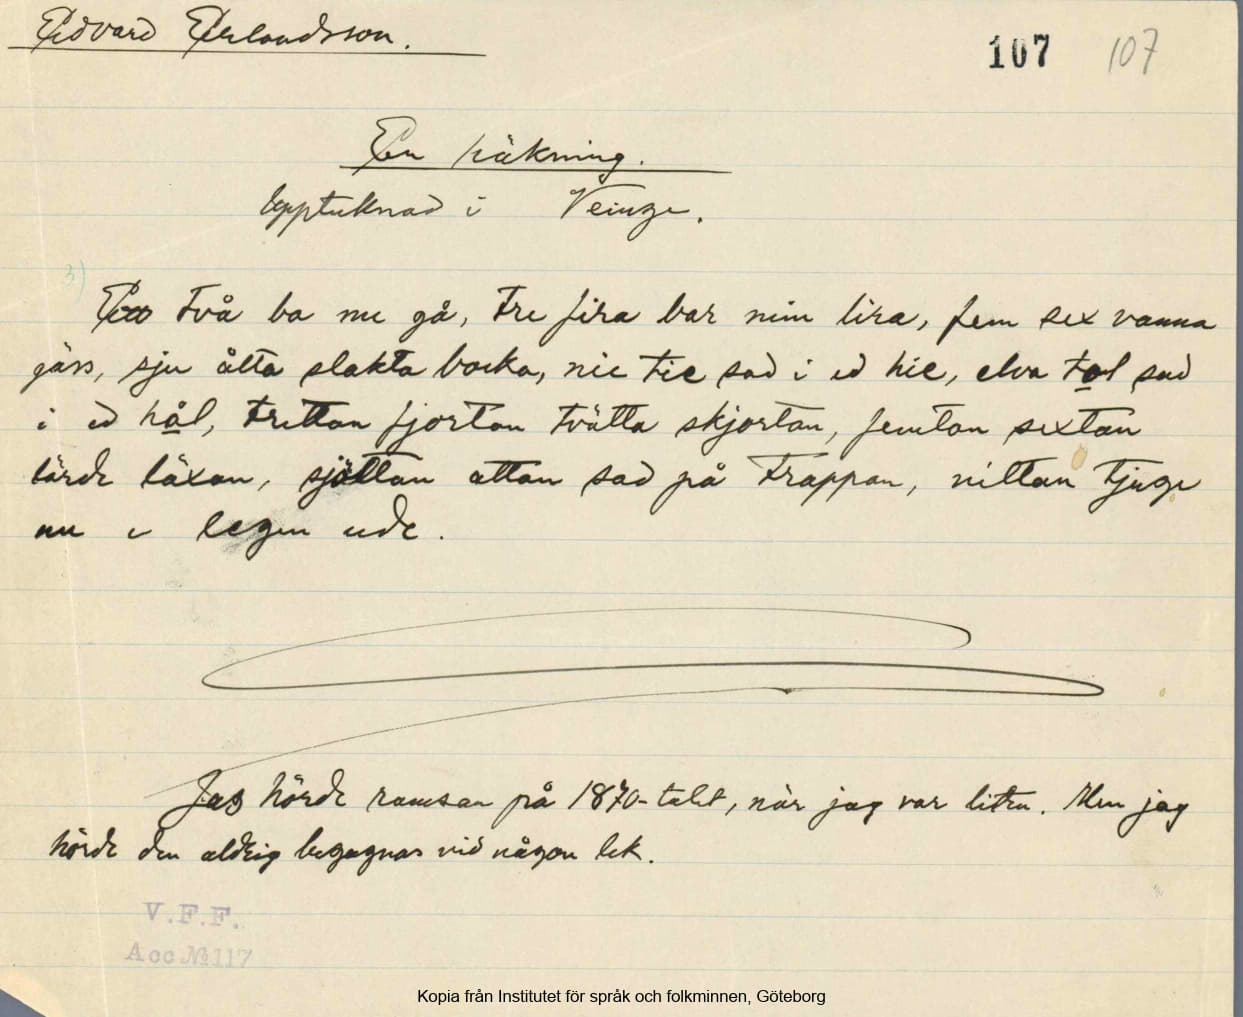 Edvard Erlandsson.
107 107
En räkning.
Upptecknad i Veinge.
3)
Ett två ba me gå, tre fira bar min lira, fem sex vanna
gäss, sju åtta slakta bocka, nie tie sad i ed hie, elva tol sad
i ed hål, trettan fjortan tvätta skjortan, femtan sextan
lärde läxan, sjöttan attan sad på trappan, nittan tjuge
nu i legen ude.
Jag hörde ramsan på 1870-talet, när jag var liten. Men jag
hörde den aldrig begagnas vid någon lek.
V.F.F.
Acc № 117
Kopia från Institutet för språk och folkminnen, Göteborg